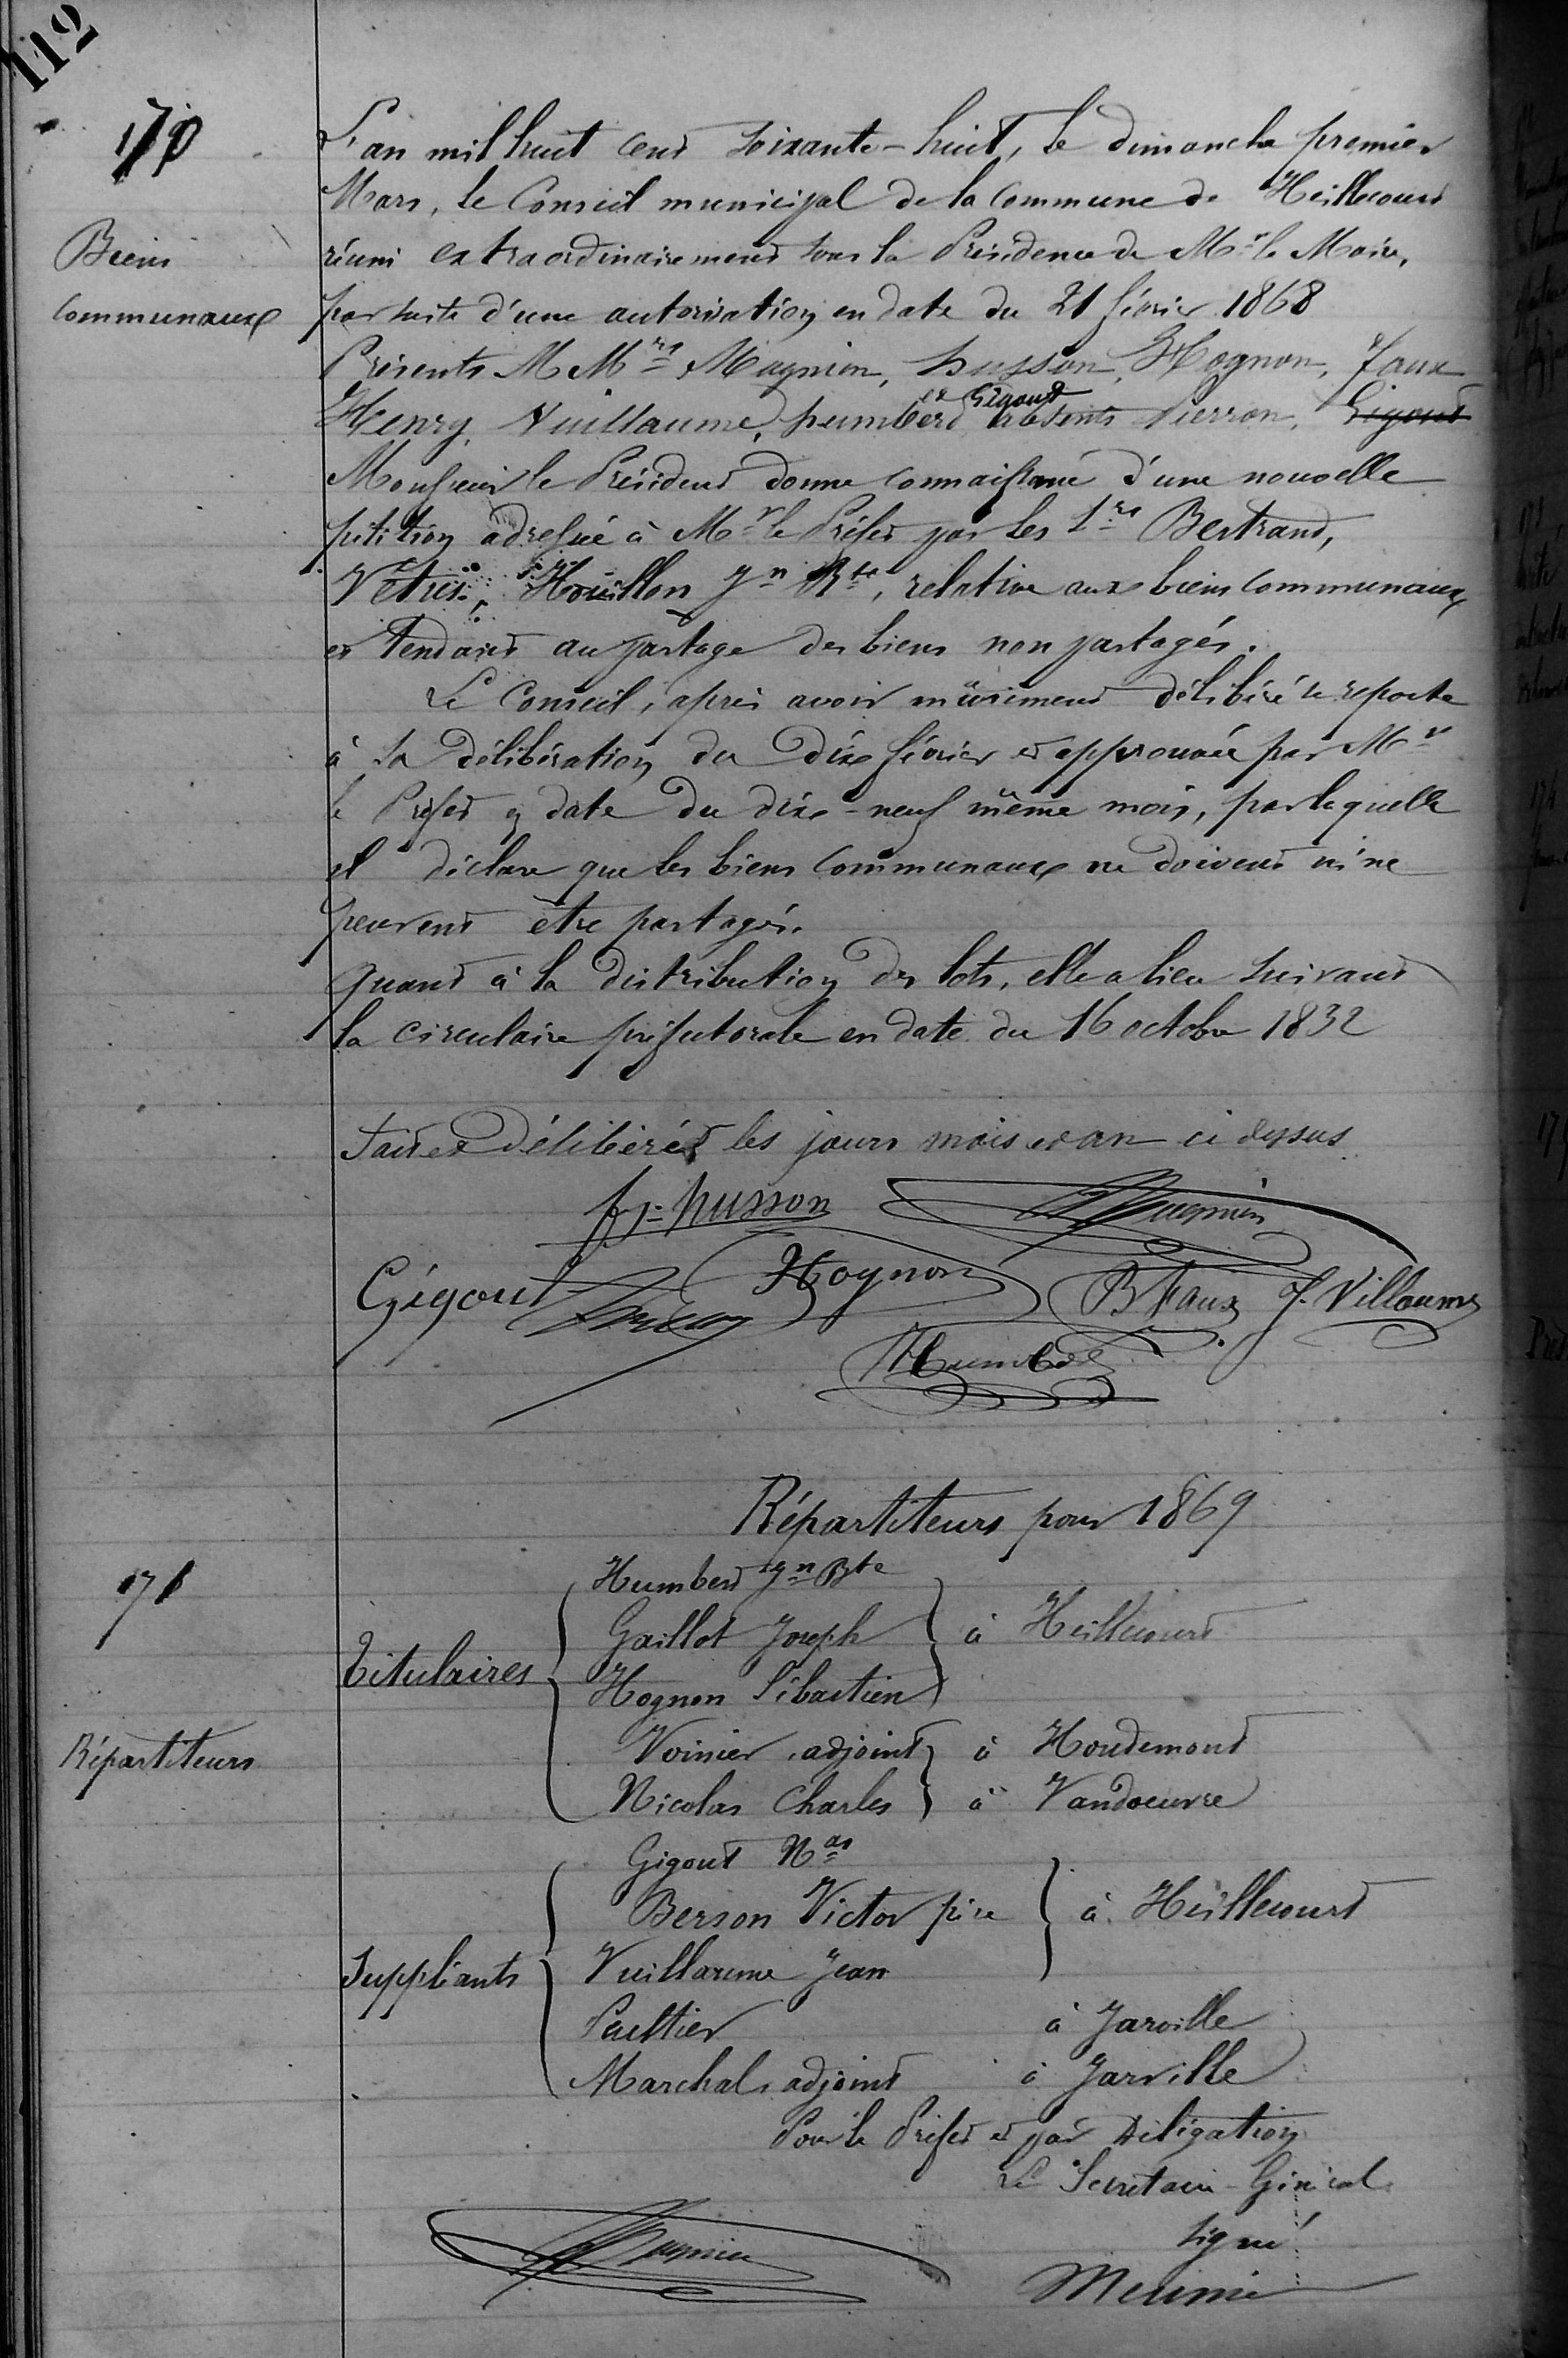 112
170
Biens
communaux
L'an mil huit cent soixante-huit, le dimanche premier
Mars, le Conseil municipal de la commune de Heillecourt
réuni extraordinairement sous la Présidence de Mr le Maire,
par suite d'une autorisation en date du 21 février 1868
Présents M Mrs Magnien, husson, Hognon, Faux
Henry, Vuillaume, humbert et Gigout absents Pierron, Gigout
Monsieur le Président donne connaissance d'une nouvelle
pétition adressée à Mr le Préfet par les Srs Bertrand,
Vétres, Houillon Jn Bte, relative aux biens communaux
et tendant au partage des biens non partagés.
Le Conseil, après avoir mûrement délibéré se reporte
à sa délibération du dix février et approuvée par Mr
le Préfet en date du dix-neuf même mois, par laquelle
il déclare que les biens communaux ne doivent ni ne
peuvent être partagés.
Quant à la distribution des lots, elle a lieu suivant
la circulaire préfectorale en date du 16 octobre 1832
Fait et Délibéré les jours mois et an ci dessus
husson Magnien
Gigout Hognon B Faux J. Villaume
Humbert
Répartiteurs pour 1869
171
Répartiteurs
Titulaires
Humbert Jn Bte
Gaillot Joseph à Heillecourt
Hognon Sébastien
Voinier, adjoint à Houdemont
Nicolas Charles à Vandoeuvre
Suppléants
Gigout Nas
Berson Victor père à Heillecourt
Vuillaume Jean
Paultier à Jarville
Marchal, adjoint à Jarville
Pour le Préfet et par Délégation
Le Secrétaire-Général
signé
Magnien Meunié